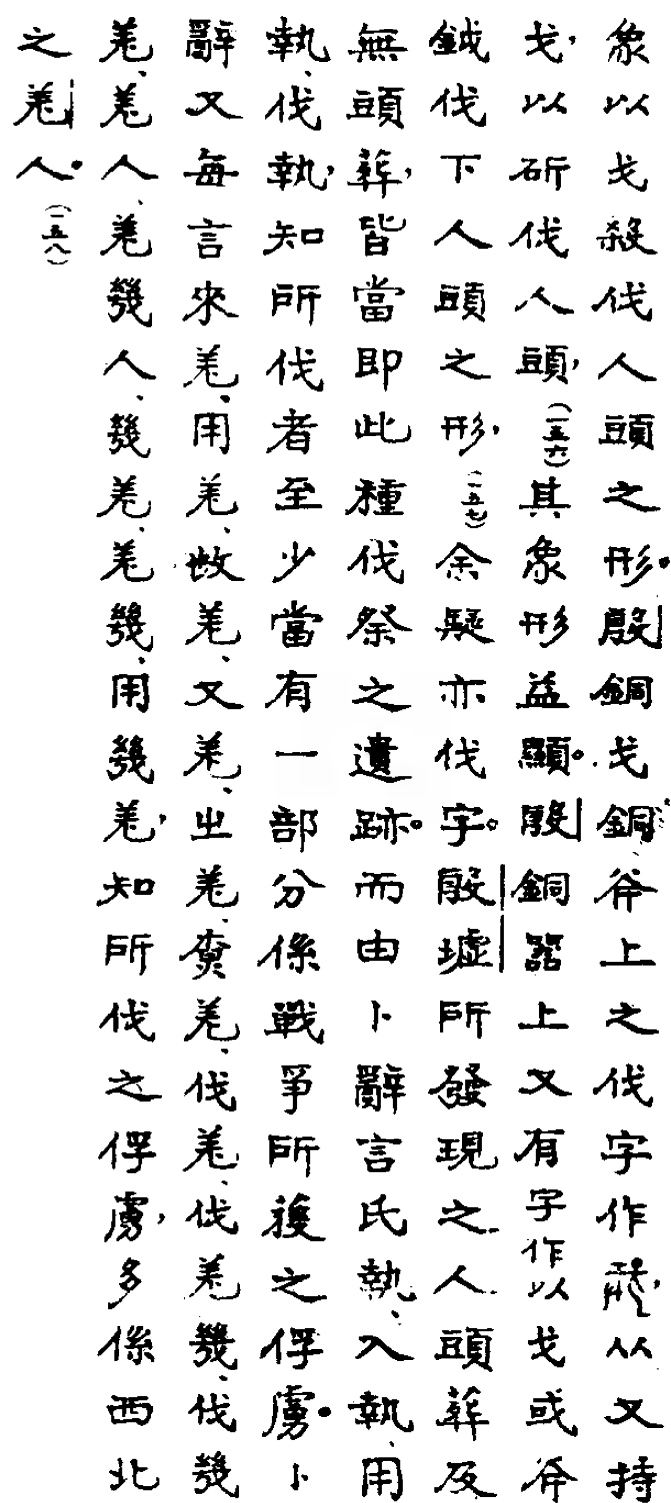 象以戈殺伐人頭之形。殷銅戈銅斧上之伐字作，从又持
戈，以斫伐人頭，（一五六）其象形益顯。殷銅器上又有字作以戈或斧
鉞伐下人頭之形，（一五七）余疑亦伐字。殷墟所發現之人頭葬及
無頭葬，皆當即此種伐祭之遺跡。而由卜辭言氏執、入執、用
執、伐執，知所伐者至少當有一部分係戰爭所獲之俘虜。卜
辭又每言來羌、用羌、羌、又羌、㞢羌、羌、伐羌、伐羌幾、伐幾
羌、羌人、羌幾人、幾羌、羌幾、用幾羌，知所伐之俘虜，多係西北
之羌人。（一五八）